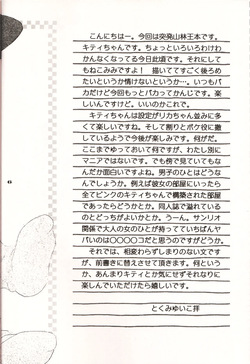 こんにちはー。今回は突発山林王本です。
キティちゃんです。ちょっといろいろわけわ
かんなくなってる今日此頃です。それにして
もねこみみですよ！　描いててすごく後ろめ
たいというか情けないというか…。いつもバ
カだけど今回もっとバカってかんじです。楽
しいんですけど。いいのかこれで。
　キティちゃんは設定がリカちゃん並みに多
くて楽しいですね。そして割りとボケ役に徹
しているようで今後が楽しみです。何がだ。
ここまでゆっておいて何ですが、わたし別に
マニアではないです。でも傍で見ていてもな
んだか面白いですよね。男子のひとはどうな
んでしょうか。例えば彼女の部屋にいったら
全てピンクのキティちゃんで構築された部屋
であったらどうかとか。同人誌で溢れている
のとどっちがよいかとか。うーん。サンリオ
関係で大人の女のひとが持っていちばんヤ
バいのは〇〇〇〇コだと思うのですがどうか。
　それでは、相変わらずしまりのない文です
が、前書きに替えさせて頂きます。何という
か、あんまりキティとか気にせずそれなりに
楽しんでいただけたら嬉しいです。
とくみゆいこ拝
6